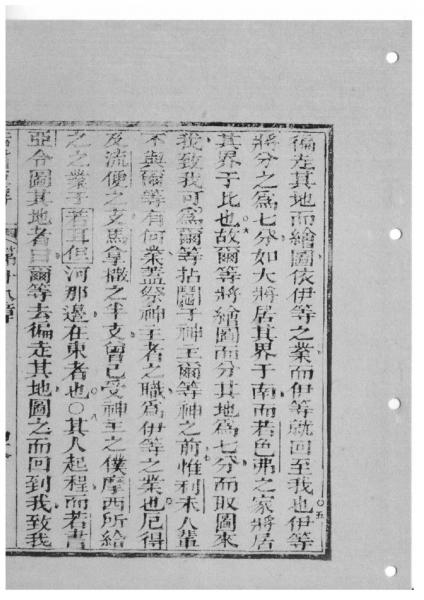 徧走其地而繪圖依伊等之業而伊等就回至我也○五伊等
將分之爲七分如大將居其界于南而若色弗之家將居
其界于北也○六故爾等將繪圖而分其地爲七分而取圖來
我致我可爲爾等拈鬮于神主爾等神之前惟利未人輩
不與爾等有何業蓋祭神主者之職爲伊等之業也厄得
及流便之支馬拿撒之半支曾已受神主之僕摩西所給
之之業于若耳但河那邊在東者也○八其人起程而若書
亞令圖其地者曰爾等去徧走其地圖之而回到我致我
第十八章